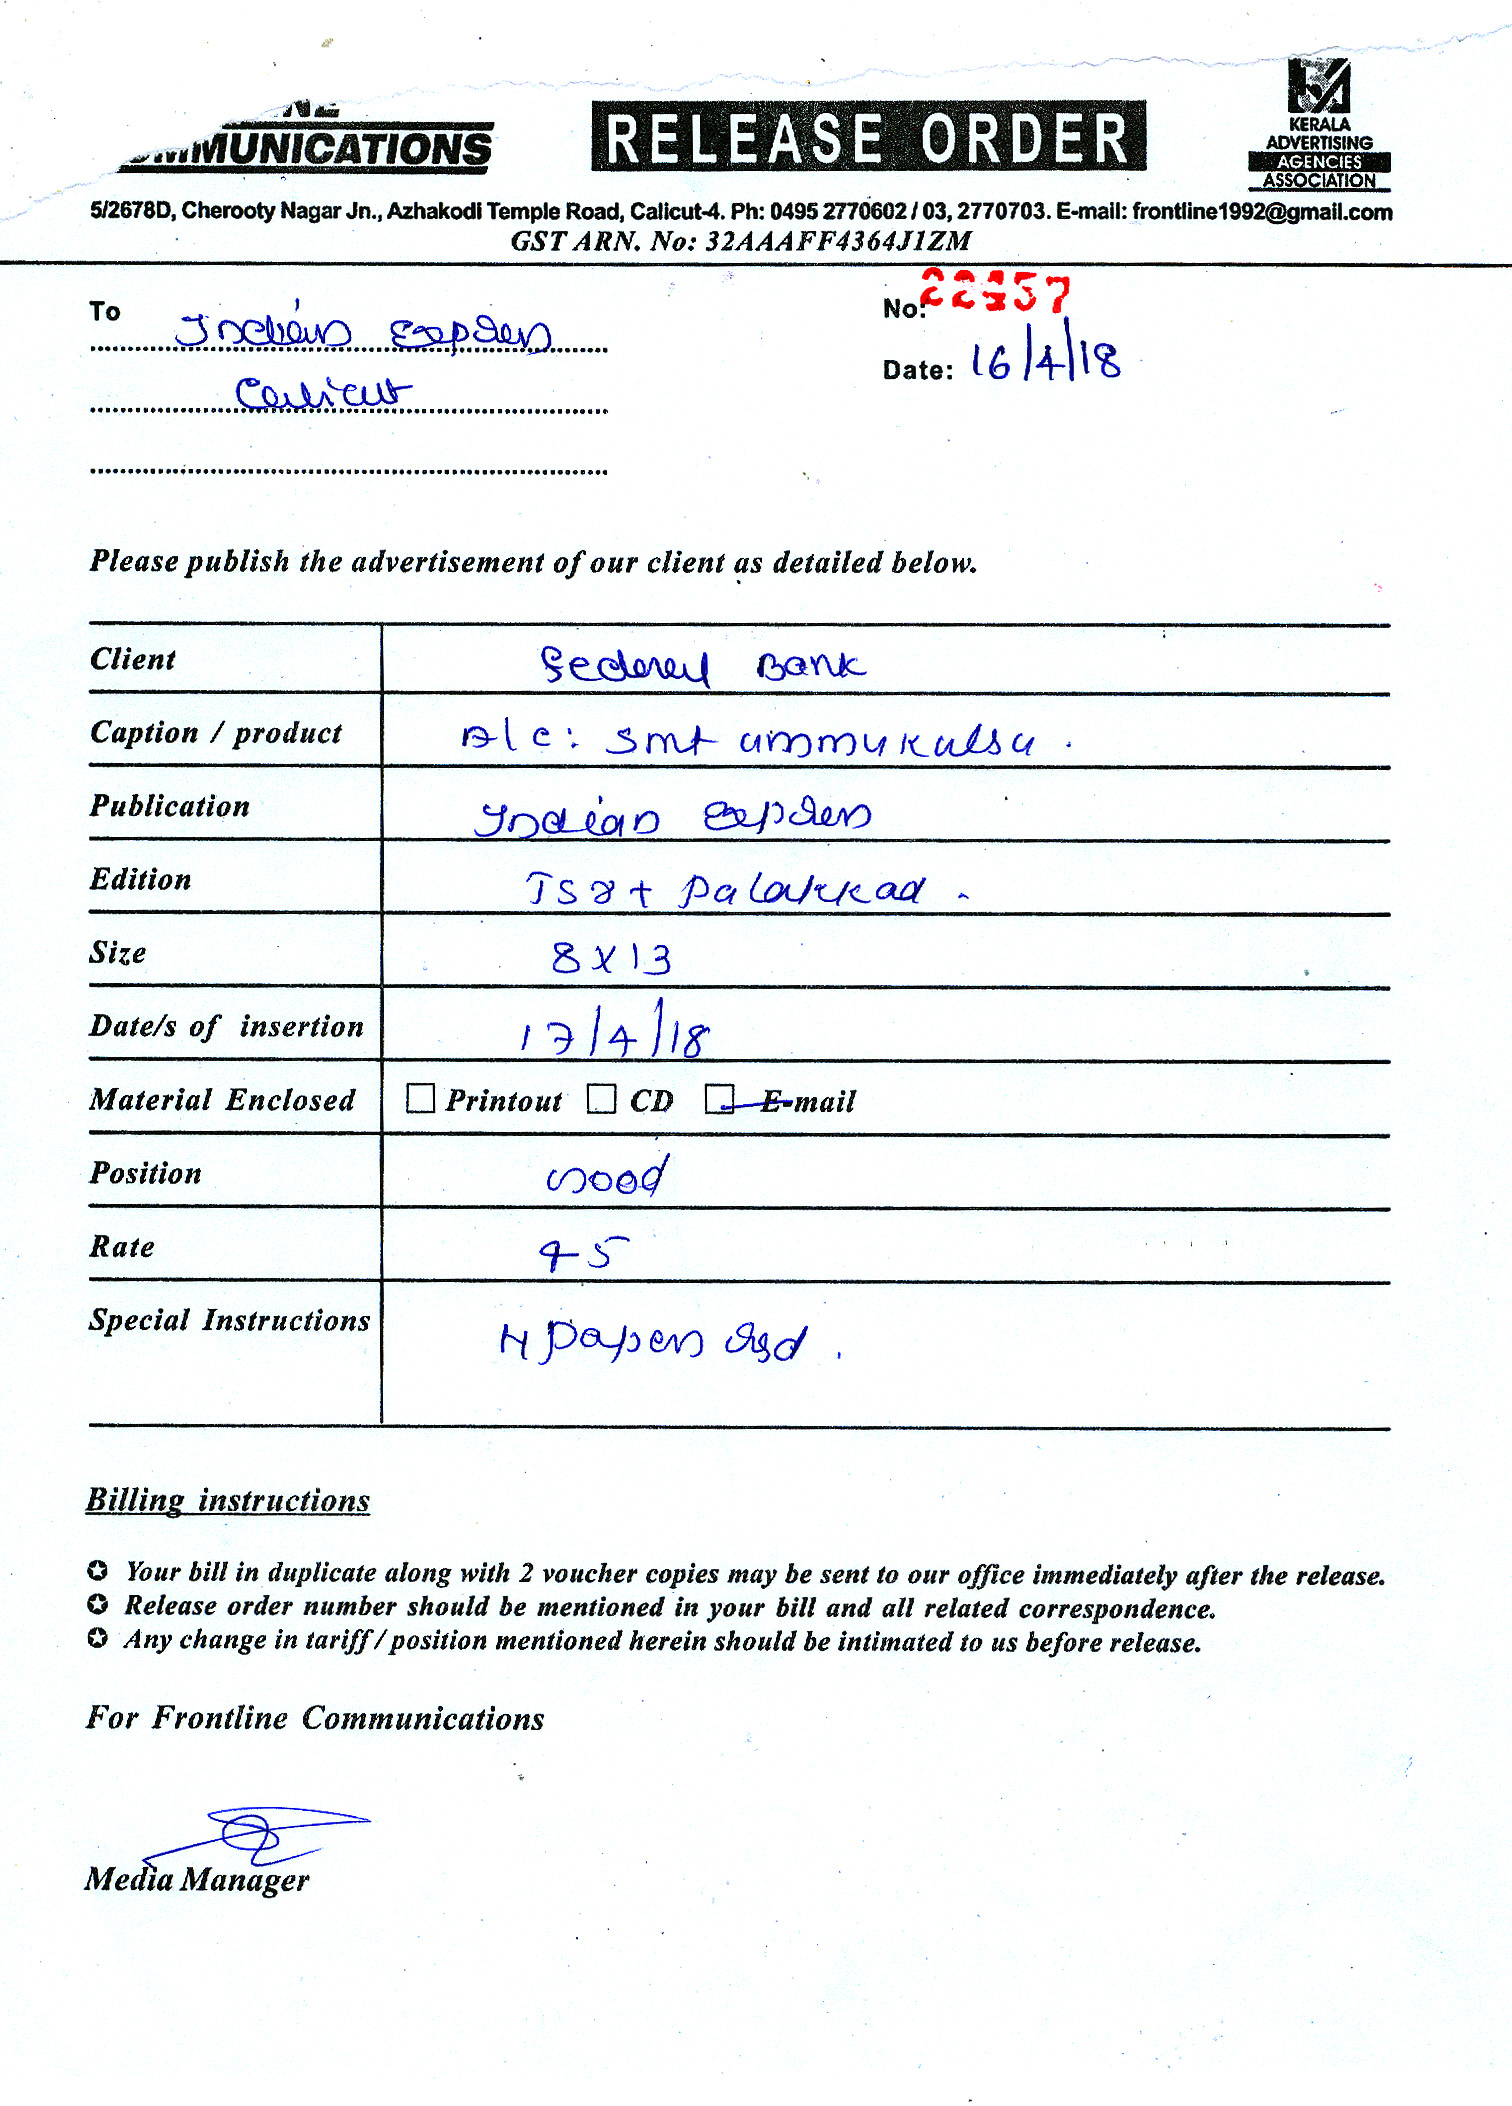 COMMUNICATIONS
RELEASE ORDER
KERALA
ADVERTISING
AGENCIES
ASSOCIATION
5/2678D, Cherooty Nagar Jn., Azhakodi Temple Road, Calicut-4. Ph: 0495 2770602 / 03, 2770703. E-mail: frontline1992@gmail.com
GST ARN. No: 32AAAFF4364J1ZM
To Indian Express
No:
Calicut
Date: 16/4/18
Please publish the advertisement of our client as detailed below.
Client Federal Bank
Caption / product A/c: Smt ummukulsu.
Publication Indian Express
Edition TSR + Palakkad
Size 8 X 13
Date/s of insertion 17/4/18
Material Enclosed Printout CD E-mail
Position Good
Rate 45
Special Instructions papers
Billing instructions
Your bill in duplicate along with 2 voucher copies may be sent to our office immediately after the release.
Release order number should be mentioned in your bill and all related correspondence.
Any change in tariff / position mentioned herein should be intimated to us before release.
For Frontline Communications
Media Manager